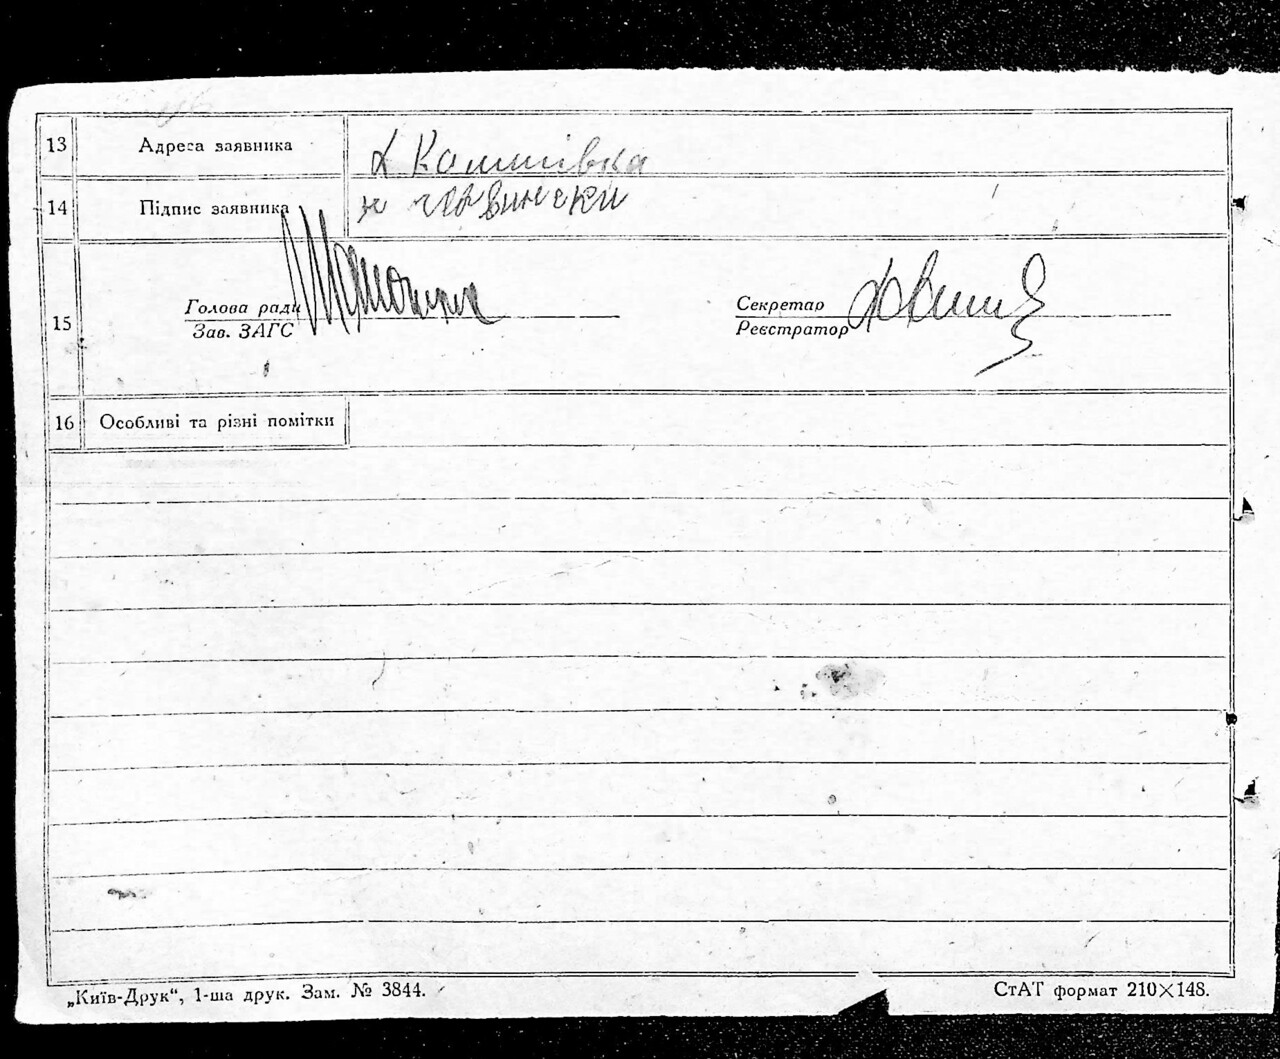 13 Адреса заявника Кашпівка
14 Підпис заявника
Голова ради Секретар
15 Зав. ЗАГС Реєстратор
16 Особливі та різні помітки
„Київ-Друк“, 1-ша друк. Зам. № 3844. СтАТ формат 210×148.